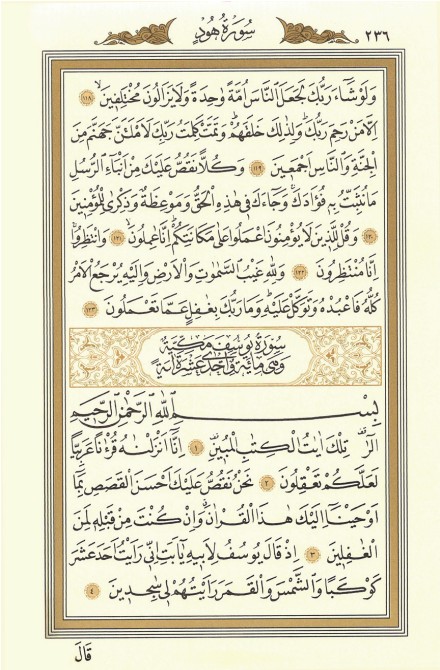 ٢٣٦
سُورَةُ هُودٍ
وَلَوْ شَٓاءَ رَبُّكَ لَجَعَلَ النَّاسَ اُمَّةً وَاحِدَةً وَلَا يَزَالُونَ مُخْتَلِفٖينَۙ ﴿١١٨﴾
اِلَّا مَنْ رَحِمَ رَبُّكَۜ وَلِذٰلِكَ خَلَقَهُمْۜ وَتَمَّتْ كَلِمَةُ رَبِّكَ لَاَمْلَـَٔنَّ جَهَنَّمَ مِنَ
الْجِنَّةِ وَالنَّاسِ اَجْمَعٖينَ ﴿١١٩﴾ وَكُلًّا نَقُصُّ عَلَيْكَ مِنْ اَنْبَٓاءِ الرُّسُلِ
مَا نُثَبِّتُ بِهٖ فُؤٰادَكَۚ وَجَٓاءَكَ فٖي هٰذِهِ الْحَقُّ وَمَوْعِظَةٌ وَذِكْرٰى لِلْمُؤْمِنٖينَ
﴿١٢٠﴾ وَقُلْ لِلَّذٖينَ لَا يُؤْمِنُونَ اعْمَلُوا عَلٰى مَكَانَتِكُمْۜ اِنَّا عَامِلُونَۙ ﴿١٢١﴾ وَانْتَظِرُواۚ
اِنَّا مُنْتَظِرُونَ ﴿١٢٢﴾ وَلِلّٰهِ غَيْبُ السَّمٰوَاتِ وَالْاَرْضِ وَاِلَيْهِ يُرْجَعُ الْاَمْرُ
كُلُّهُ فَاعْبُدْهُ وَتَوَكَّلْ عَلَيْهِۜ وَمَا رَبُّكَ بِغَافِلٍ عَمَّا تَعْمَلُونَ ﴿١٢٣﴾
سُورَةُ يُوسُفَ مَكِّيَّةٌ
وَهِيَ مِائَةٌ وَاِحْدٰى عَشْرَةَ اٰيَةً
بِسْمِ اللّٰهِ الرَّحْمٰنِ الرَّحٖيمِ
الٓرٰ۠ تِلْكَ اٰيَاتُ الْكِتَابِ الْمُبٖينِ۠ ﴿١﴾ اِنَّٓا اَنْزَلْنَاهُ قُرْءٰنًا عَرَبِيًّا
لَعَلَّكُمْ تَعْقِلُونَ ﴿٢﴾ نَحْنُ نَقُصُّ عَلَيْكَ اَحْسَنَ الْقَصَصِ بِمَٓا
اَوْحَيْنَٓا اِلَيْكَ هٰذَا الْقُرْاٰنَۗ وَاِنْ كُنْتَ مِنْ قَبْلِهٖ لَمِنَ
الْغَافِلٖينَ ﴿٣﴾ اِذْ قَالَ يُوسُفُ لِاَبٖيهِ يَٓا اَبَتِ اِنّٖي رَاَيْتُ اَحَدَ عَشَرَ
كَوْكَبًا وَالشَّمْسَ وَالْقَمَرَ رَاَيْتُهُمْ لٖي سَاجِدٖينَ ﴿٤﴾
قَالَ